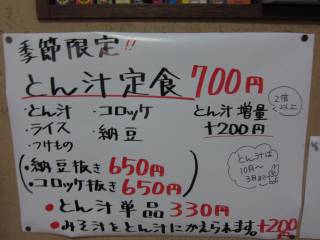 季節限定!!
とん汁定食 700円
・とん汁 ・コロッケ
・ライス ・納豆
・つけもの
とん汁増量
+200円
2倍以上
(・納豆抜き 650円
・コロッケ抜き 650円)
とん汁は
10月〜
3月まで
・とん汁単品 330円
・みそ汁をとん汁にかえられます +200円